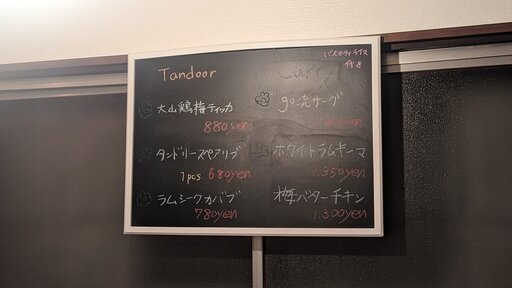 Tandoor
大山鶏梅ティッカ
880yen
タンドリースペアリブ
1pcs 680yen
ラムシークカバブ
780yen
バスマティライス
付き
Curry
go流サーグ
ホワイトラムキーマ
1,350yen
梅バターチキン
1,300yen